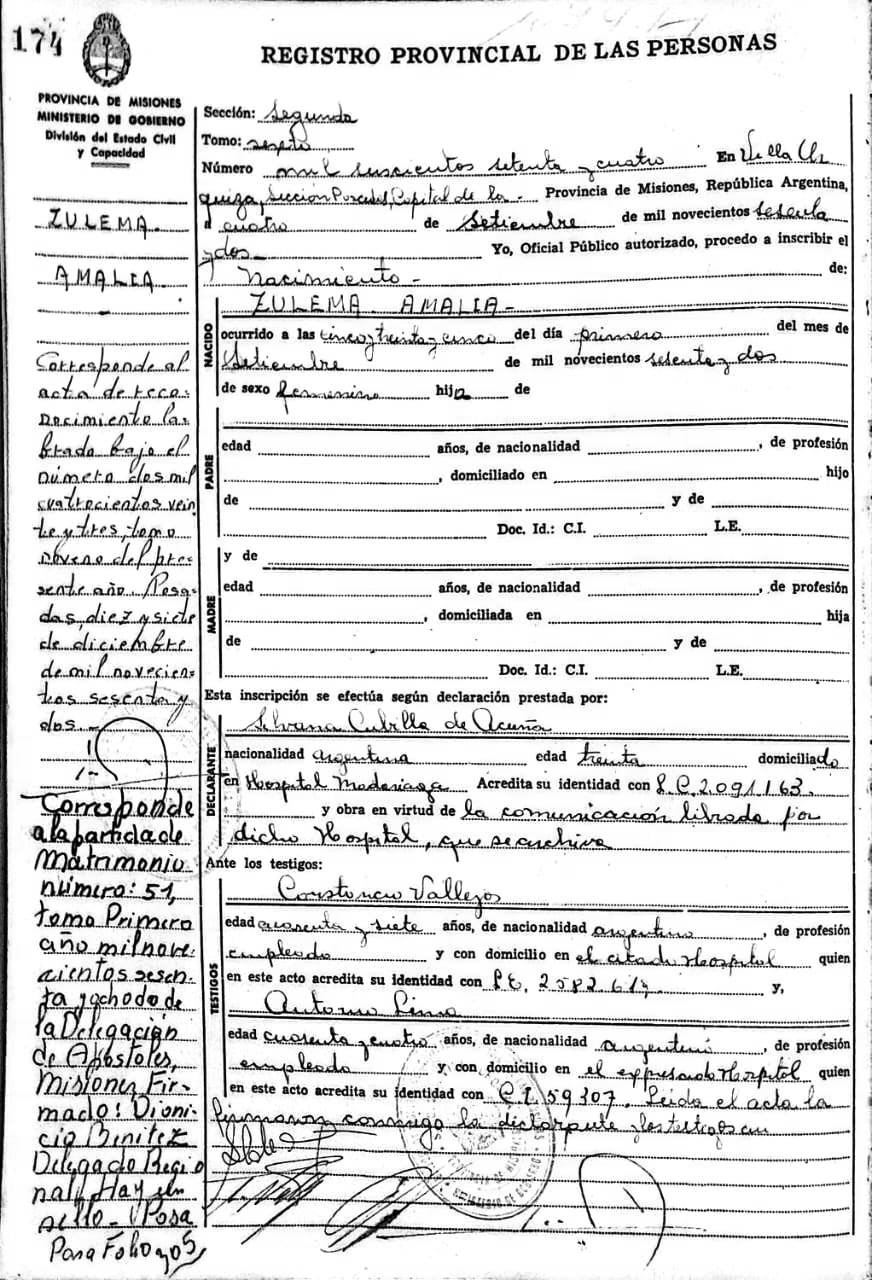 174
REGISTRO PROVINCIAL DE LAS PERSONAS
PROVINCIA DE MISIONES
MINISTERIO DE GOBIERNO
División del Estado Civil
y Capacidad
ZULEMA.
AMALIA.
Corresponde al
acta de reco-
nocimiento la-
brado bajo el
número dos mil
cuatrocientos vein
te y tres, tomo
noveno del pre-
sente año. Posa-
das, diez y siete
de diciembre
de mil novecien-
tos sesenta y
dos.-
Corresponde
a la partida de
Matrimonio
número: 51,
tomo Primero
año mil nove-
cientos sesen-
ta y ocho de
la Delegación
de Apostoles,
Misiones, Fir-
mado: Dioni-
cio Benitez
Delegado Regio
nal. Hay un
sello -
Pasa Folio 205
Sección: Segunda
Tomo: sexto
Número mil setenta y cuatro En Villa Ur
quiza, Sección Posadas, Capital de la - Provincia de Misiones, República Argentina,
a cuatro de Setiembre de mil novecientos sesenta
y dos - Yo, Oficial Público autorizado, procedo a inscribir el
Nacimiento - de:
NACIDO
ZULEMA AMALIA -
ocurrido a las cinco y treinta y cinco del día primero del mes de
Setiembre de mil novecientos sesenta y dos
de sexo femenino hija de
PADRE
edad años, de nacionalidad , de profesión
, domiciliado en hijo
de y de
Doc. Id.: C.I. L.E.
MADRE
y de
edad años, de nacionalidad , de profesión
, domiciliada en hija
de y de
Doc. Id.: C.I. L.E.
Esta inscripción se efectúa según declaración prestada por:
DECLARANTE
Silvana Cubilla de Acuña
nacionalidad argentina edad treinta domiciliado
en Hospital Madariaga Acredita su identidad con L.C. 2.091.163.
y obra en virtud de la comunicación librada por
dicho Hospital, que se archiva
Ante los testigos:
TESTIGOS
Vallejos
edad cuarenta y siete años, de nacionalidad argentino , de profesión
empleado y con domicilio en el citado Hospital quien
en este acto acredita su identidad con y,
Antonio Lima
edad cuarenta y cuatro años, de nacionalidad argentino , de profesión
empleado y con domicilio en el expresado Hospital quien
en este acto acredita su identidad con C.I. 59307. Leída el acta la
firmaron conmigo la declarante y los testigos